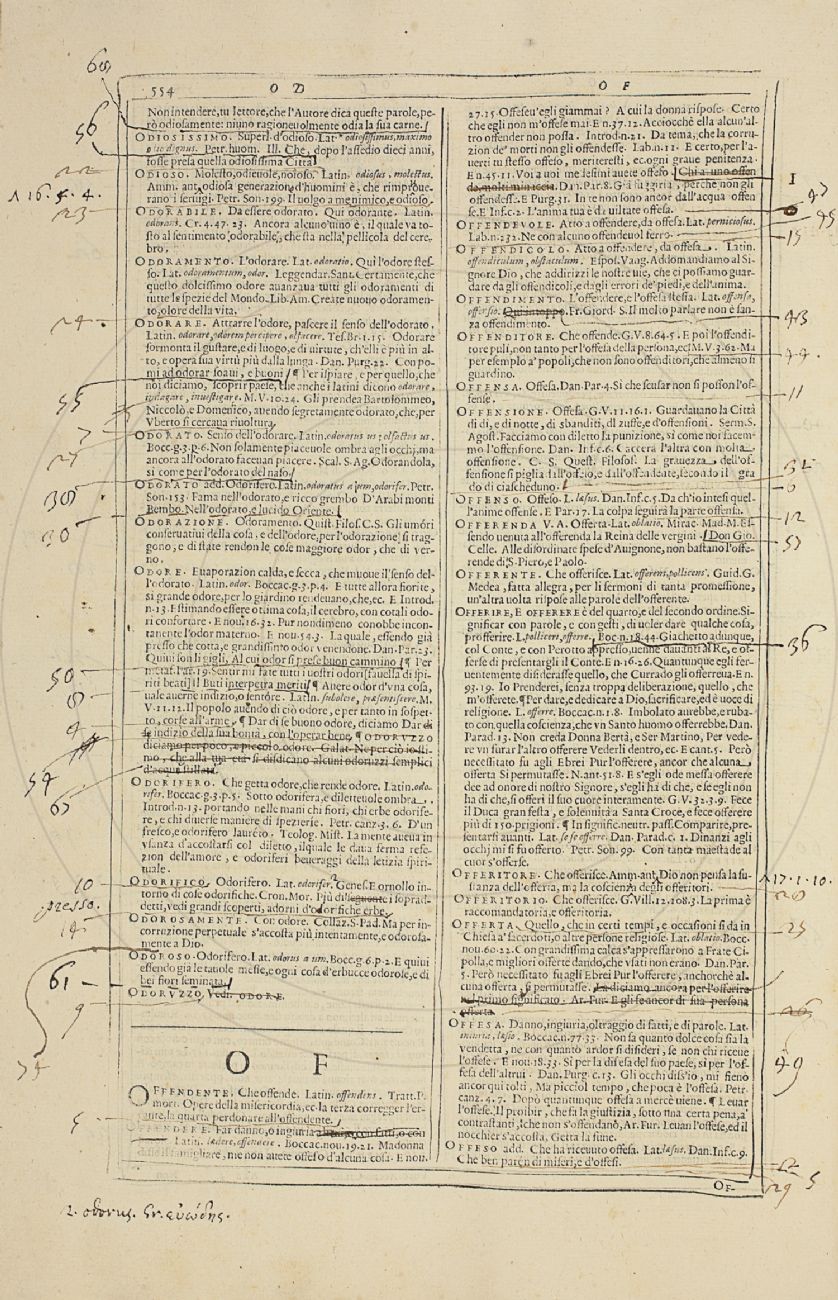 554
OD
OF
Non intendere, tu lettore, che l'Autore dica queste parole, pe-
rò odiosamente: niuno ragioneuolmente odia la sua carne.
ODIOSISSIMO. Superl. d'odioso. Lat. odiosissimus, maximo
odio dignus. Petr. huom. Ill. Che, dopo l'assedio dieci anni,
fosse presa quella odiosissima Città
ODIOSO. Molesto, odieuole, noioso. Latin. odiosus, molestus.
Amm. ant. odiosa generazion d'huomini è, che rimproue-
rano i seruigi. Petr. Son. 199. Il volgo a me nimico, ed odioso.
ODORABILE. Da essere odorato. Qui odorante. Latin.
odorani. Cr. 4. 47. 23. Ancora alcuno vino è, il quale va to-
sto al sentimento odorabile, che sta nella pellicola del cere-
bro.
ODORAMENTO. L'odorare. Lat. odoratio. Qui l'odore stes-
so. Lat. odoramentum, odor. Leggendar. Sant. Certamente, che
questo dolcissimo odore auanzaua tutti gli odoramenti di
tutte le spezie del Mondo. Lib. Am. Create nuouo odoramen-
to, olore della vita.
ODORARE. Attrarre l'odore, pascere il senso dell'odorato.
Latin. odorare, odorem percipere, olfacere. Tes. Br. 1. 15. Odorare
sormonta il gustare, e di luogo, e di uirtute, ch'elli è più in al-
to, e opera sua virtù più dalla lunga. Dan. Purg. 22. Con po-
mi ad odorar soaui, e buoni ¶ Per ispiare, e per quello, che
noi diciamo, scoprir paese, che anche i latini dicono odorare,
indagare, inuestigare. M. V. 10. 24. Gli prendea Bartolommeo,
Niccolò, e Domenico, auendo segretamente odorato, che, per
Vberto si cercaua riuoltura.
ODORATO. Senso dell'odorare. Latin. odoratus us: olfactus us.
Bocc. g. 3. p. 6. Non solamente piaceuole ombra agli occhi, ma
ancora all'odorato faceuan piacere. Scal. S. Ag. Odorandola,
sì come per l'odorato del naso.
ODORATO add. Odorifero. Latin. odoratus a um, odorifer. Petr.
Son. 153. Fama nell'odorato, e ricco grembo D'Arabi monti
Bembo. Nell'odorato, e lucido Oriente.
ODORAZIONE. Odoramento. Quist. Filos. C. S. Gli umóri
conseruatiui della cosa, e dell'odore, per l'odorazione, si trag-
gono, e di state rendon le cose maggiore odor, che di ver-
no.
ODORE. Euaporazion calda, e secca, che muoue il senso del-
l'odorato. Latin. odor. Boccac. g. 3. p. 4. E tutte allora fiorite,
sì grande odore, per lo giardino rendeuano, che, ec. E Introd.
n. 13. Estimando essere ottima cosa, il cerebro, con cotali odo-
ri confortare. E nou. 16. 32. Pur nondimeno conobbe incon-
tanente l'odor materno. E nou. 54. 3. La quale, essendo già
presso che cotta, e grandissimo odor venendone. Dan. Par. 23.
Quiui son li gigli, Al cui odor si prese buon cammino ¶ Per
metaf. Par. 19. Sentir mi fate tutti i vostri odori
¶ Auere odor d'vna cosa,
uale auerne indizio, o sentore. Latin. subolere, præsentiscere. M.
V. 11. 12. Il popolo auendo di ciò odore, e per tanto in sospet-
to, corse all'arme. ¶ Dar di se buono odore, diciamo Dar di
se indizio della sua bontà, con l'operar bene. ¶ ODORVZZO
diciamo per poco, e piccolo odore. Galat. Ne perciò io sti-
mo, che alla tua età si disdicano alcuni odoruzzi semplici
d'acque stillate.
ODORIFERO. Che getta odore, che rende odore. Latin. odo-
rifer. Boccac. g. 3. p. 5. Sotto odorifera, e dilettevole ombra.
Introd. n. 13. portando nelle mani chi fiori, chi erbe odorife-
re, e chi diuerse maniere di spezierie. Petr. canz. 3. 6. D'vn
fresco, e odorifero laureto. Teolog. Mist. La mente auea in
vsanza d'accostarsi col diletto, il quale le daua ferma refe-
zion dell'amore, e odoriferi beueraggi della letizia spiri-
tuale.
ODORIFICO. Odorifero. Lat. odorifer. Genes. E ornollo in-
torno di cose odorifiche. Cron. Mor. Più di seguente i soprad-
detti, vedi grandi scoperti, adorni d'odorifiche erbe.
ODOROSAMENTE. Con odore. Collaz. S. Pad. Ma per in-
corruzione perpetuale s'accosta più intentamente, e odorosa-
mente a Dio.
ODOROSO. Odorifero. Lat. odorus a um. Bocc. g. 6. p. 2. E quiui
essendo già le tauole messe, e ogni cosa d'erbucce odorose, e di
bei fiori seminata.
ODORVZZO. Vedi ODORE.
OF
OFFENDENTE. Che offende. Latin. offendens. Tratt. P.
mort. Opere della misericordia, ec. la terza corregger l'er-
rante, la quarta perdonare all'offendente.
OFFENDERE. Far danno, o ingiuria altrui, o con fatti, o con
Latin. lædere, offendere. Boccac. nou. 19. 21. Madonna
disse il famigliare, me non auete offeso d'alcuna cosa. E nou.
27. 15. Offeseu'egli giammai? A cui la donna rispose. Certo
che egli non m'offese mai. E n. 37. 12. Acciocchè ella alcun'al-
tro offender non possa. Introd. n. 21. Da tema, che la corru-
zion de' morti non gli offendesse. Lab. n. 11. E certo, per l'a-
uerti tu stesso offeso, meriteresti, ec. ogni graue penitenza.
En. 45. 11. Voi a uoi medesimi auete offeso. Chi a uno offen
de, molti minaccia. Dan. Par. 8. Già ingiuria, perchè non gli
offendesse. E Purg. 31. In te non sono ancor dall'acqua offen
se. E Inf. c. 2. L'anima tua è di uiltate offesa.
OFFENDEVOLE. Atto a offendere, da offesa. Lat. perniciosus.
Lab. n. 231. Ne con alcuno offendeuol ferro.
OFFENDICOLO. Atto a offendere, da offesa. Latin.
offendiculum, obstaculum. Espos. Vang. Addomandiamo al Si-
gnore Dio, che addirizzi le nostre uie, che ci possiamo guar-
dare dagli offendicoli, e dagli errori de' piedi, e dell'anima.
OFFENDIMENTO. L'offendere, e l'offesa stessa. Lat. offensa,
offensio. Qui intoppo. Fr. Giord. S. Il molto parlare non è san-
za offendimento.
OFFENDITORE. Che offende. G. V. 8. 64. 5. E poi l'offendi-
tore puli, non tanto per l'offesa della persona, ec. M. V. 3. 62. Ma
per esemplo a' popoli, che non sono offenditori, che almeno si
guardino.
OFFENSA. Offesa. Dan. Par. 4. Sì che scusar non si posson l'of-
fense.
OFFENSIONE. Offesa. G. V. 11. 16. 1. Guardauano la Città
di dì, e di notte, di sbanditi, di zuffe, e d'offensioni. Serm. S.
Agost. Facciamo con diletto la punizione, sì come noi facem-
mo l'offensione. Dan. Inf. c. 6. Caccerà l'altra con molta
offensione. C. S. Quest. Filosof. La grauezza dell'of-
fensione si piglia dall'offeso, e dall'offendente, secondo il gra
do di ciascheduno.
OFFENSO. Offeso. L. læsus. Dan. Inf. c. 5. Da ch'io intesi quel-
l'anime offense. E Par. 17. La colpa seguirà la parte offensa.
OFFERENDA V. A. Offerta. Lat. oblatio. Mirac. Mad. M. Es-
sendo uenuta all'offerenda la Reina delle vergini. Don Gio.
Celle. Alle disordinate spese d'Auignone, non bastano l'offe-
rende di S. Piero, e Paolo.
OFFERENTE. Che offerisce. Lat. offerens, pollicens. Guid. G.
Medea, fatta allegra, per li sermoni di tanta promessione,
un'altra uolta rispose alle parole dell'offerente.
OFFERIRE, E OFFERERE è del quarto, e del secondo ordine. Si-
gnificar con parole, e con gesti, di uoler dare qualche cosa,
profferire. L. polliceri, offerre. Boc. n. 18. 44. Giachetto adunque,
col Conte, e con Perotto appresso, uenne dauanti al Re, e of-
ferse di presentargli il Conte. E n. 16. 26. Quantunque egli fer-
uentemente disiderasse quello, che Currado gli offereua. E n.
93. 19. Io Prenderei, senza troppa deliberazione, quello, che
m'offerete. ¶ Per dare, e dedicare a Dio, sacrificare, ed è uoce di
religione. L. offerre. Boccac. n. 1. 8. Imbolato aurebbe, e ruba-
to con quella coscienza, che vn Santo huomo offerrebbe. Dan.
Parad. 13. Non creda Donna Berta, e Ser Martino, Per vede-
re vn furar l'altro offerere Vederli dentro, ec. E cant. 5. Però
necessitato fu agli Ebrei Pur l'offerere, ancor che alcuna
offerta Si permutasse. N. ant. 51. 8. E s'egli ode messa offerere
dee ad onore di nostro Signore, s'egli ha di che, e se egli non
ha di che, si offeri il suo cuore interamente. G. V. 32. 3. 9. Fece
il Duca gran festa, e solennità a Santa Croce, e fece offerere
più di 150. prigioni. ¶ In signific. neutr. pass. Comparire, pre-
sentarsi auanti. Lat. se se offerre. Dan. Parad. c. 1. Dinanzi agli
occhi mi si fu offerto. Petr. Son. 99. Con tanta maestade al
cuor s'offerse.
OFFERITORE. Che offerisce. Amm. ant. Dio non pensa la su-
stanza dell'offeria, ma la coscienza degli offeritori.
OFFERITORIO. Che offerisce. G. Vill. 12. 108. 3. La prima è
raccomandatoria, e offeritoria.
OFFERTA. Quello, che in certi tempi, e occasioni si da in
Chiesa a' sacerdoti, o altre persone religiose. Lat. oblatio. Bocc.
nou. 60. 22. Con grandissima calca s'appressarono a Frate Ci-
polla, e migliori offerte dando, che vsati non erano. Dan. Par.
5. Però necessitato fu agli Ebrei Pur l'offerere, anchorchè al-
cuna offerta, si permutasse. La diciamo ancora per l'offerire
nel primo significato. Ar. Fur. E gli fe ancor di sua persona
offerta.
OFFESA. Danno, ingiuria, oltraggio di fatti, e di parole. Lat.
iniuria, læsio. Boccac. n. 77. 33. Non sa quanto dolce cosa sia la
vendetta, ne con quanto ardor si disideri, se non chi riceue
l'offese. E nou. 18. 33. Sì per la difesa del suo paese, sì per l'of-
fesa dell'altrui. Dan. Purg. c. 13. Gli occhi diss'io, mi fieno
ancor qui tolti, Ma picciol tempo, che poca è l'offesa. Petr.
canz. 4. 7. Dopò quantunque offesa a mercè uiene. ¶ Leuar
l'offese. Il proibir, che fa la giustizia, sotto una certa pena, a'
contrastanti, che non s'offendano. Ar. Fur. Leuan l'offese, ed il
nocchier s'accosta, Getta la fune.
OFFESO add. Che ha riceuuto offesa. Lat. læsus. Dan. Inf. c. 9.
Che ben parèn di miseri, e d'offesi.
OF-
60
56
22
16. 5. 4.
23
24
55
7
30
50
8
9
54
65
10
presso.
14
61
9
5
I
47
45
15
43
44
11
12
57
36
17. 1. 10.
25
49
29
5